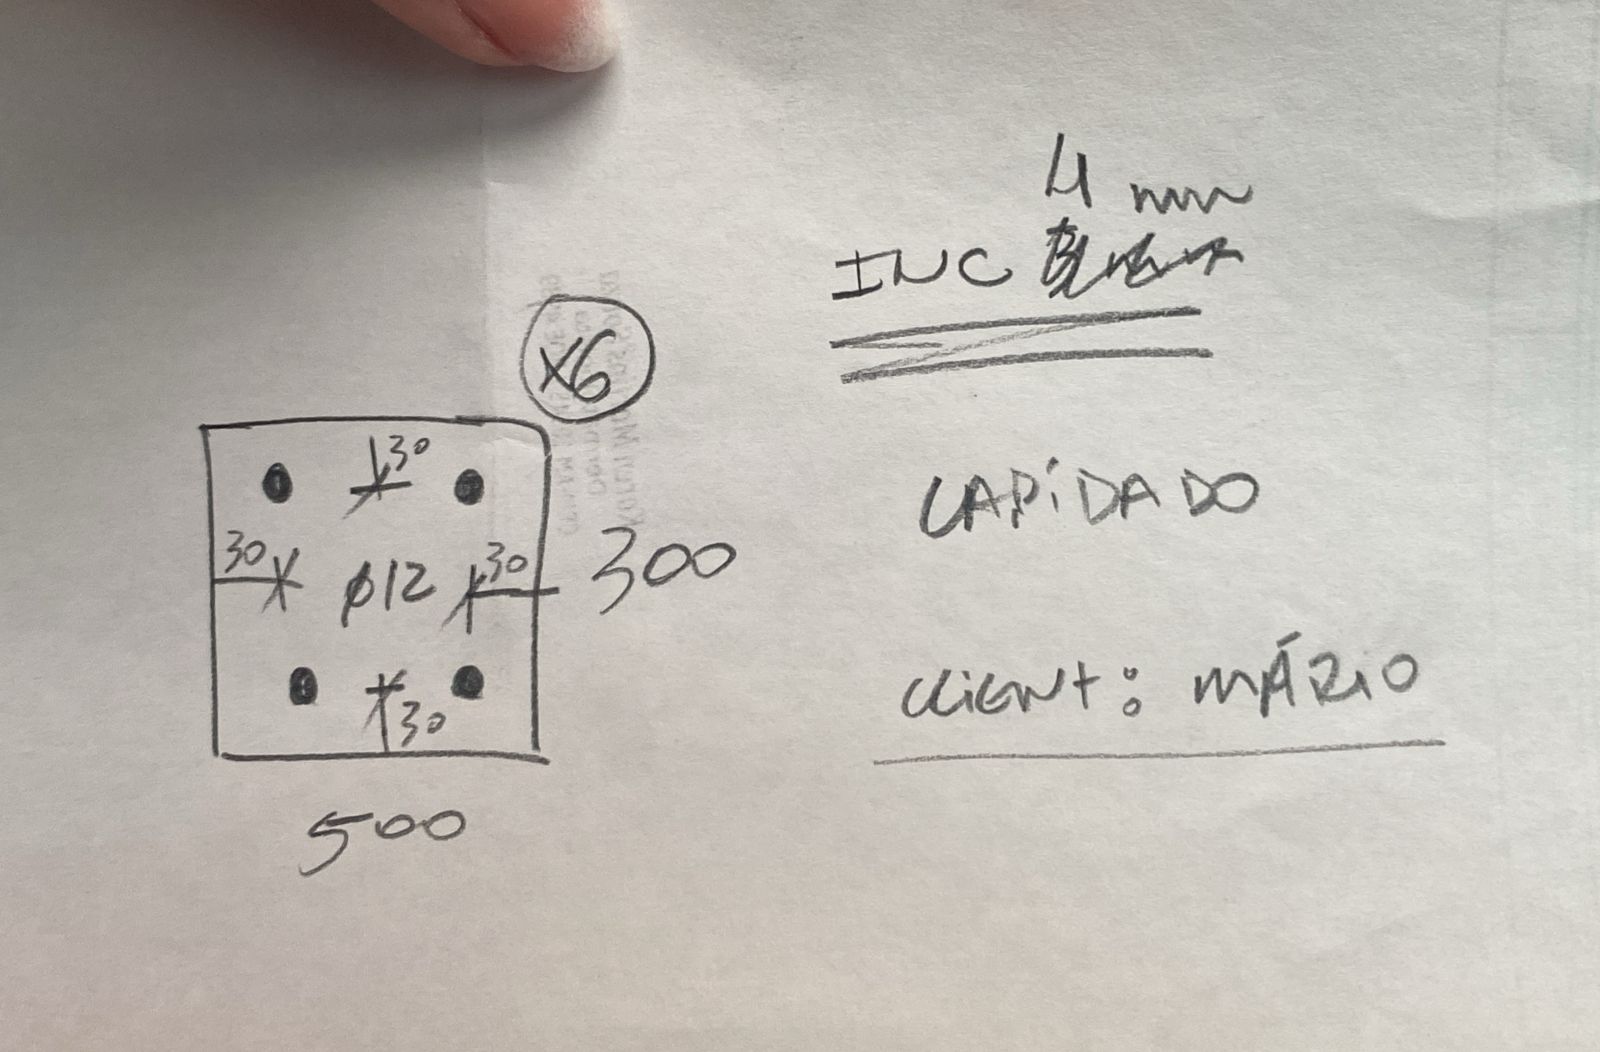 4 mm
INC
x6
30
30
ø12
30
300
30
500
LAPiDADO
CLiENT: MÁRiO